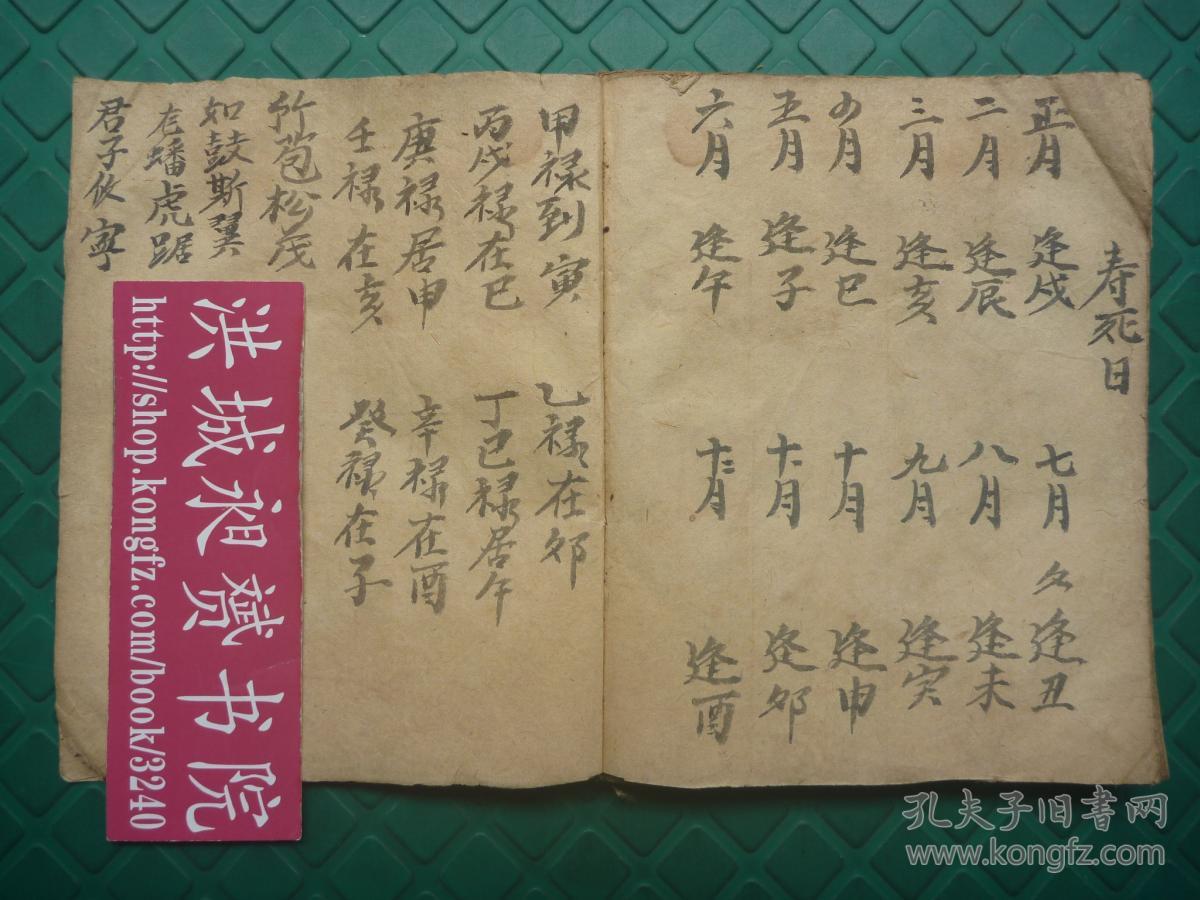 寿死日
正月 逢戍 七月 逢丑
二月 逢辰 八月 逢未
三月 逢亥 九月 逢寅
四月 逢巳 十月 逢申
五月 逢子 十一月 逢卯
六月 逢午 十二月 逢酉
甲禄到寅 乙禄在卯
丙戊禄在巳 丁己禄居午
庚禄居申 辛禄在酉
壬禄在亥 癸禄在子
竹苞松茂
如鼓斯翼
龙蟠虎踞
君子攸宁
洪城昶赟书院
http://shop.kongfz.com/book/3240
孔夫子旧書网
www.kongfz.com